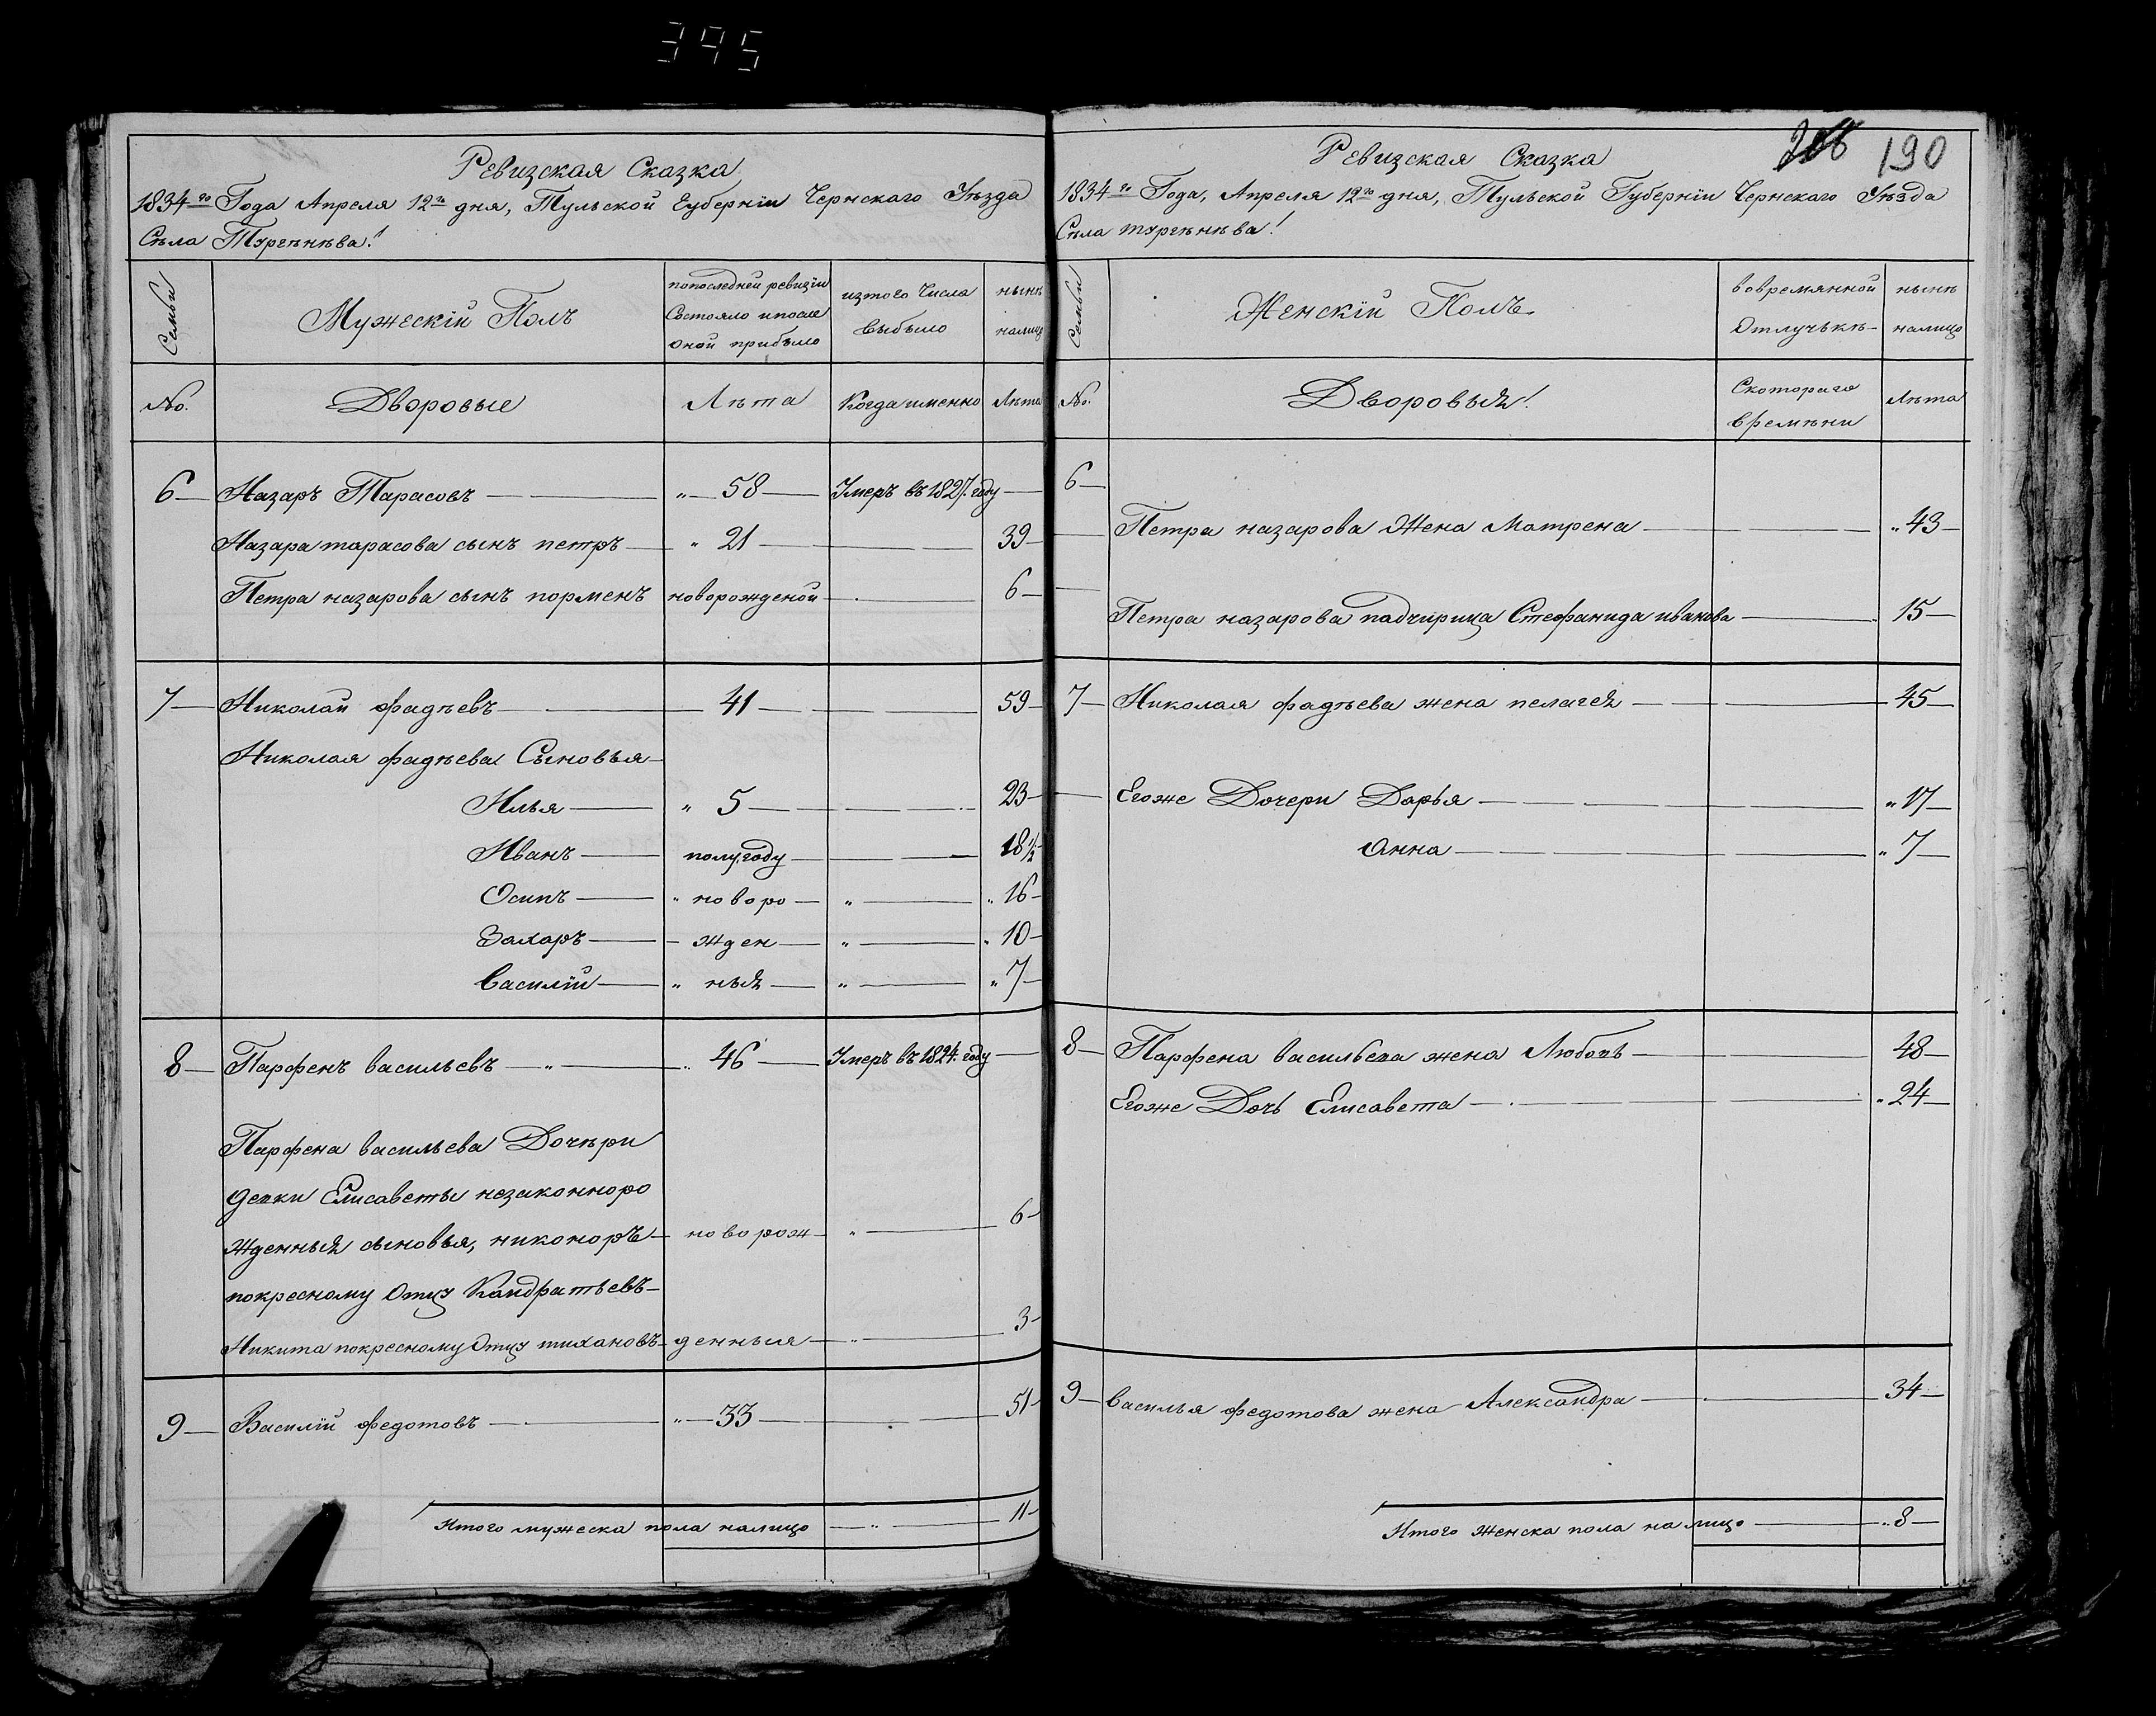 395
Ревизская Сказка
1834го Года Апреля 12го дня, Тульской Губерніи Чернскаго Уѣзда
Сѣла Тургѣнѣва!
Семьи
Мужескій Полъ
попоследней ревизіи
Состояло ипосле
Оной прибыло
изтого Числа
выбыло
нынѣ
налицо
No.
Дворовые
Лѣта
Когда именно
Лѣта
6 Назаръ Тарасовъ " 58 Умеръ въ 1827. году
Назара тарасова сынъ петръ " 21 39
Петра назарова сынъ порменъ новорожденой 6
7 Николай фадѣевъ 41 59
Николая фадѣева Сыновья
Илья " 5 23
Иванъ полу году 18 1/2
Осипъ " новоро " " 16
Захаръ жден " " 10
Василій " ныя " " 7
8 Парфенъ васильевъ " " 46 Умеръ въ 1824. году
Парфена васильева Дочѣри
девки Елисаветы незаконноро
жденныя сыновья, никоноръ новорож " 6
покресному Отцу Кандратьевъ
Никита покресному Отцу тихановъ денныя " 3
9 Василій федотовъ " 33 51
Итого мужеска пола налицо " 11
208 190
Ревизская Сказка
1834го Года, Апреля 12го дня, Тульской Губерніи Чернскаго Уѣзда
Сѣла тургѣнѣва!
Семьи
Женскій Полъ
вовремянной
Отлучькѣ
нынѣ
налицо
No.
Дворовыя!
Скотораго
врѣмѣни
Лѣта
6
Петра назарова Жена Матрена " 43
Петра назарова падчирица Стефанида иванова 15
7 Николая фадѣева жена пелагея 45
Егоже Дочери Дарья " 17
Анна " 7
8 Парфена васильева жена Любовь 48
Егоже Дочь Елисавета " 24
9 василья федотова жена Александра 34
Итого Женска пола на лицо " 8